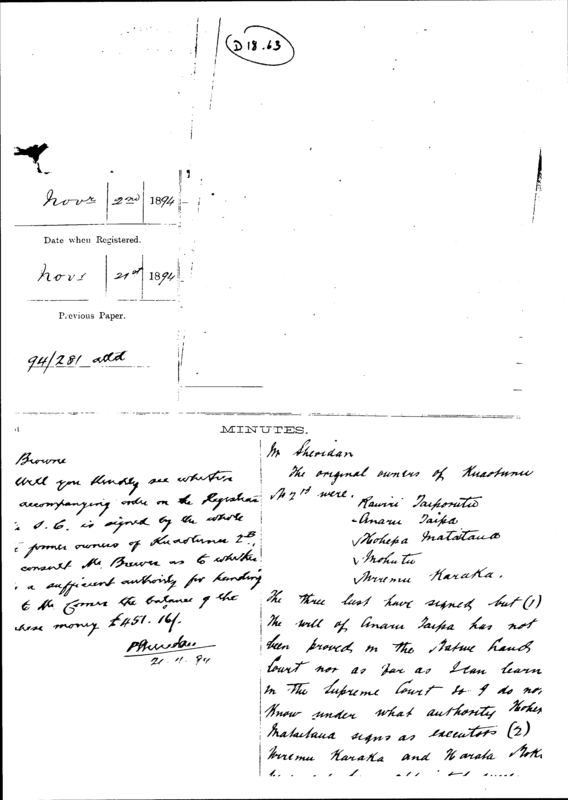 D 18.63
Novr 2nd 1894
Date when Registered.
Novr 21st 1894
Previous Paper.
94/281 attd
MINUTES.
Browne
Will you kindly see whether
accompanying order on the Registrar
S. C. is signed by the whole
former owners of Kuaotunu 2B
consult Mr Brewer as to whether
a sufficient authority for handing
to the the balance of the
money £451.16/.
21.11.94
Mr Sheridan
The original owners of Kuaotunu
were.
Rawiri Taiporutu
- Anaru Taipa
√Hohepa Mataitaua
√Mohutu
√Wiremu Karaka.
The three last have signed but (1)
The will of Anaru Taipa has not
been proved in the Native Land
Court nor as far as I can learn
in the Supreme Court & I do no
know under what authority Hohep
Mataitaua signs as executors (2)
Wiremu Karaka and Harata